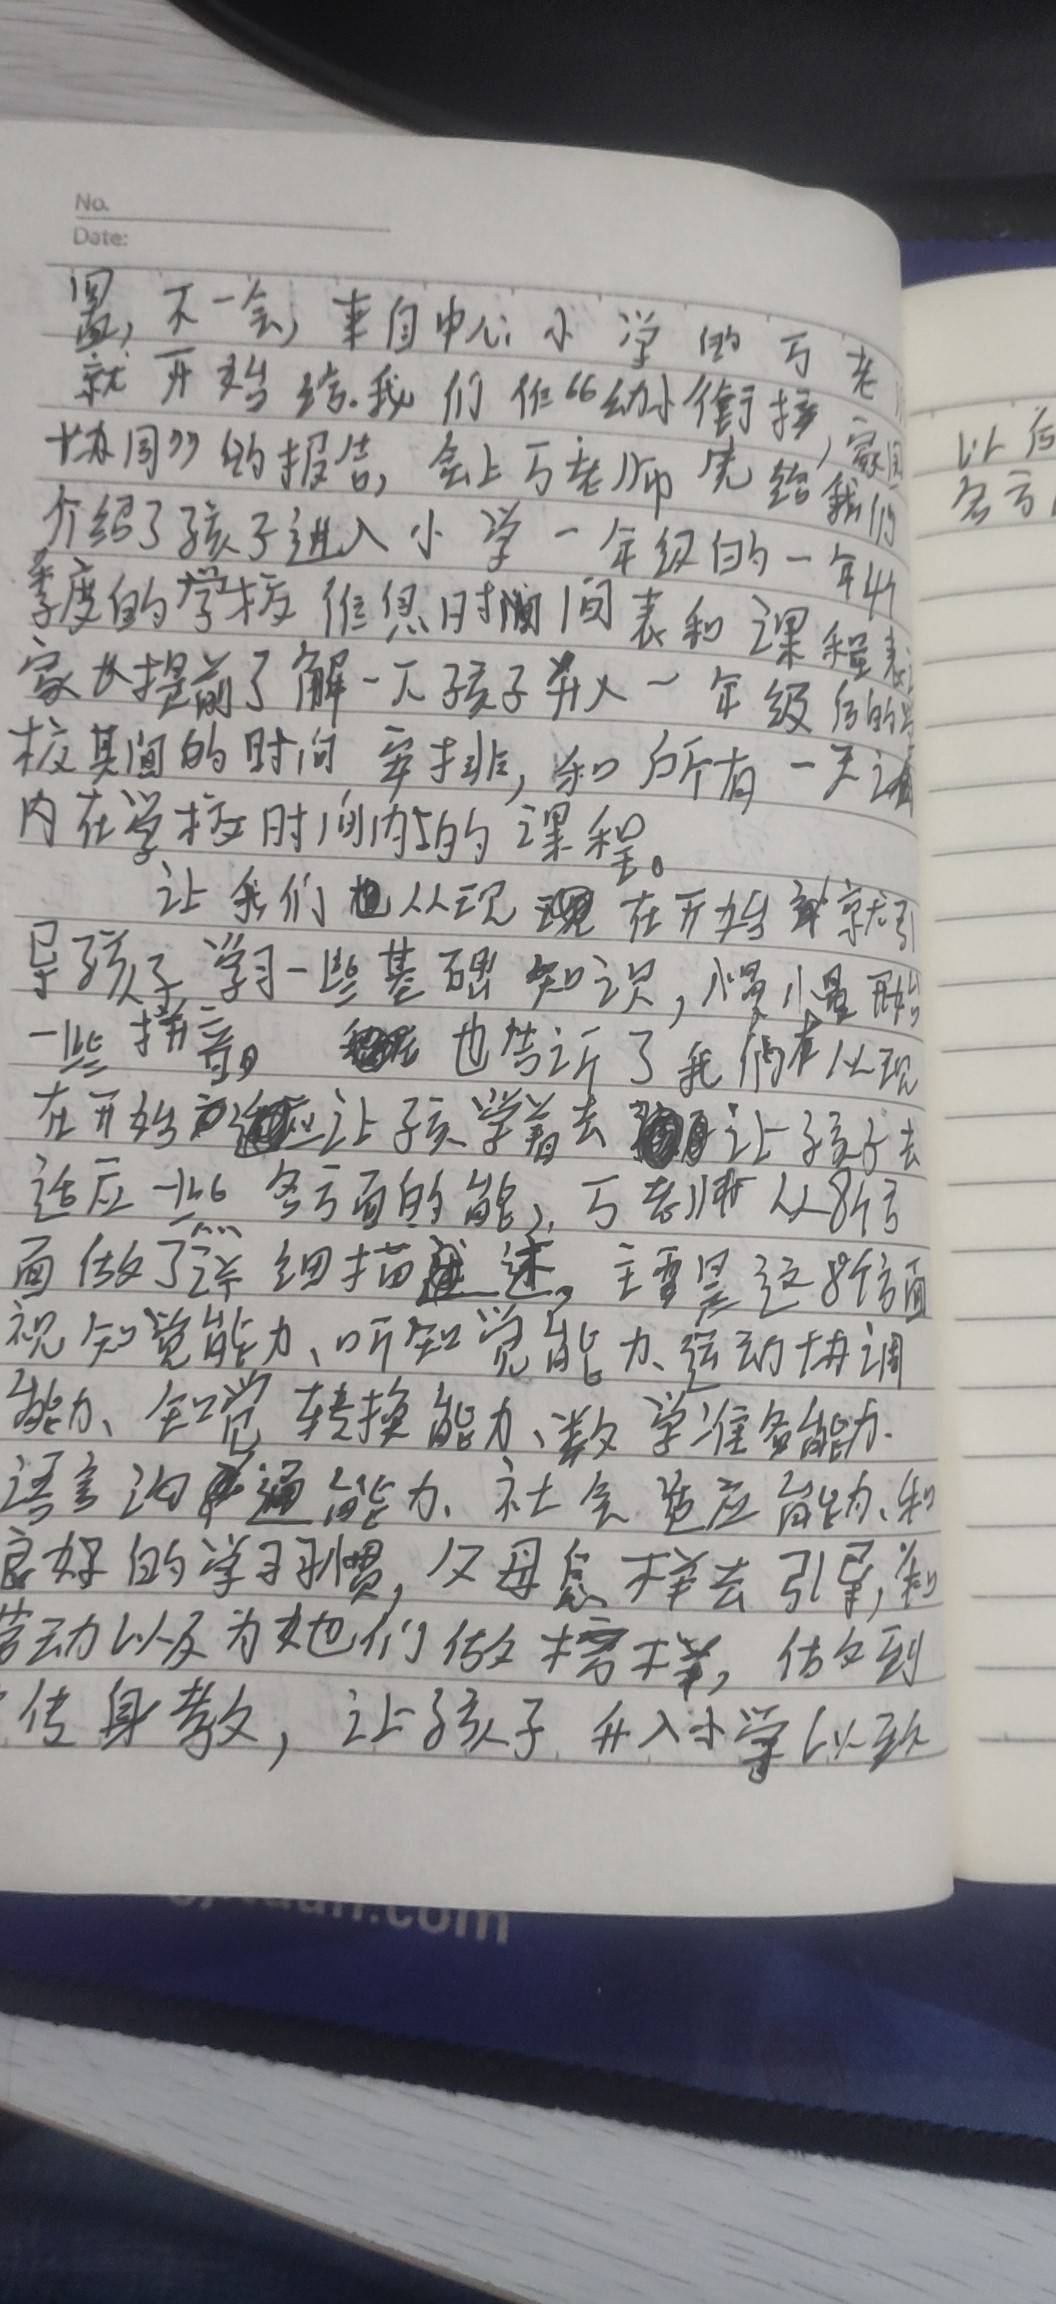 No.
Date:
置，不一会，来自中心小学的万老
就开始给我们作“幼小衔接，家园
协同”的报告，会上万老师先给我们
介绍了孩子进入小学一年级的一年4个
季度的学校作息时间表和课程表，
家长提前了解一下孩子升入一年级后的学
校其间的时间安排，和所有一天
内在学校时间内的课程。
让我们也从现在开始就引
导孩子学习一些基础知识，慢慢开始
一些拼音。也告诉了我们从现
在开始让孩学着去让孩子去
适应一些各方面的能，万老师从8个方
面做了详细描述。主要是这8个方面
视知觉能力、听知觉能力、运动协调
能力、知觉转换能力、数学准备能力、
语言沟通能力、社会适应能力、和
良好的学习习惯，父母怎样去引导，和
劳动以及为她们做榜样，做到
传身教，让孩子升入小学以致
以后
各方
.com